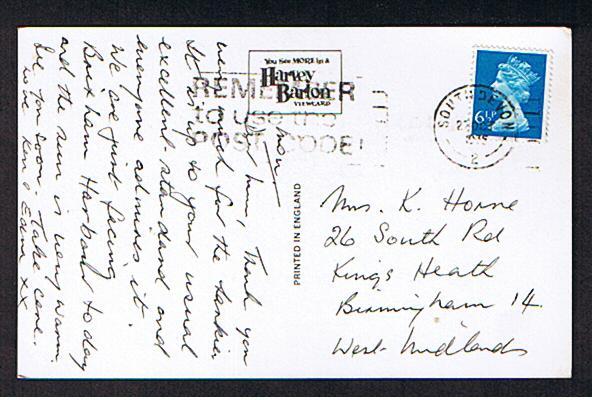 You see MORE in a
Harvey
Barton
VIEWCARD
REMEMBER
to use the
POST CODE!
SOUTH DEVON
2
6½P
PRINTED IN ENGLAND
Dear Mum, Thank you
very much for the
It is up to your usual
excellent standard and
everyone admires it.
We are just facing
Brixham Harbour today
and the sun is very warm.
See you soon - Take care.
Love Ken &
xx
Mrs. K. Horne
26 South Rd
Kings Heath
Birmingham 14.
West Midlands